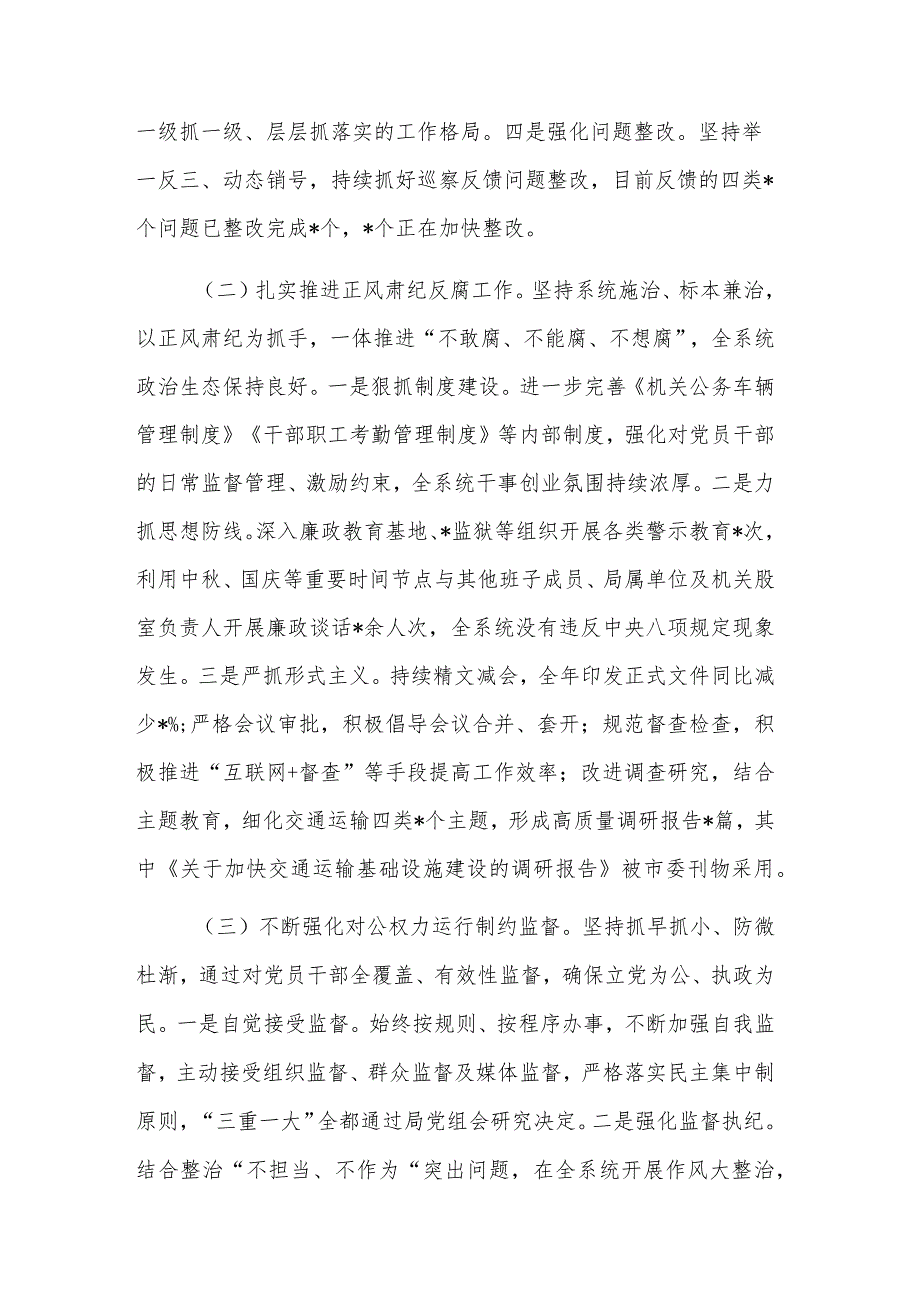 一级抓一级、层层抓落实的工作格局。四是强化问题整改。坚持举
一反三、动态销号，持续抓好巡察反馈问题整改，目前反馈的四类*
个问题已整改完成*个，*个正在加快整改。
（二）扎实推进正风肃纪反腐工作。坚持系统施治、标本兼治，
以正风肃纪为抓手，一体推进“不敢腐、不能腐、不想腐”，全系统
政治生态保持良好。一是狠抓制度建设。进一步完善《机关公务车辆
管理制度》《干部职工考勤管理制度》等内部制度，强化对党员干部
的日常监督管理、激励约束，全系统干事创业氛围持续浓厚。二是力
抓思想防线。深入廉政教育基地、*监狱等组织开展各类警示教育*次，
利用中秋、国庆等重要时间节点与其他班子成员、局属单位及机关股
室负责人开展廉政谈话*余人次，全系统没有违反中央八项规定现象
发生。三是严抓形式主义。持续精文减会，全年印发正式文件同比减
少*%;严格会议审批，积极倡导会议合并、套开；规范督查检查，积
极推进“互联网+督查”等手段提高工作效率；改进调查研究，结合
主题教育，细化交通运输四类*个主题，形成高质量调研报告*篇，其
中《关于加快交通运输基础设施建设的调研报告》被市委刊物采用。
（三）不断强化对公权力运行制约监督。坚持抓早抓小、防微
杜渐，通过对党员干部全覆盖、有效性监督，确保立党为公、执政为
民。一是自觉接受监督。始终按规则、按程序办事，不断加强自我监
督，主动接受组织监督、群众监督及媒体监督，严格落实民主集中制
原则，“三重一大”全都通过局党组会研究决定。二是强化监督执纪。
结合整治“不担当、不作为“突出问题，在全系统开展作风大整治，